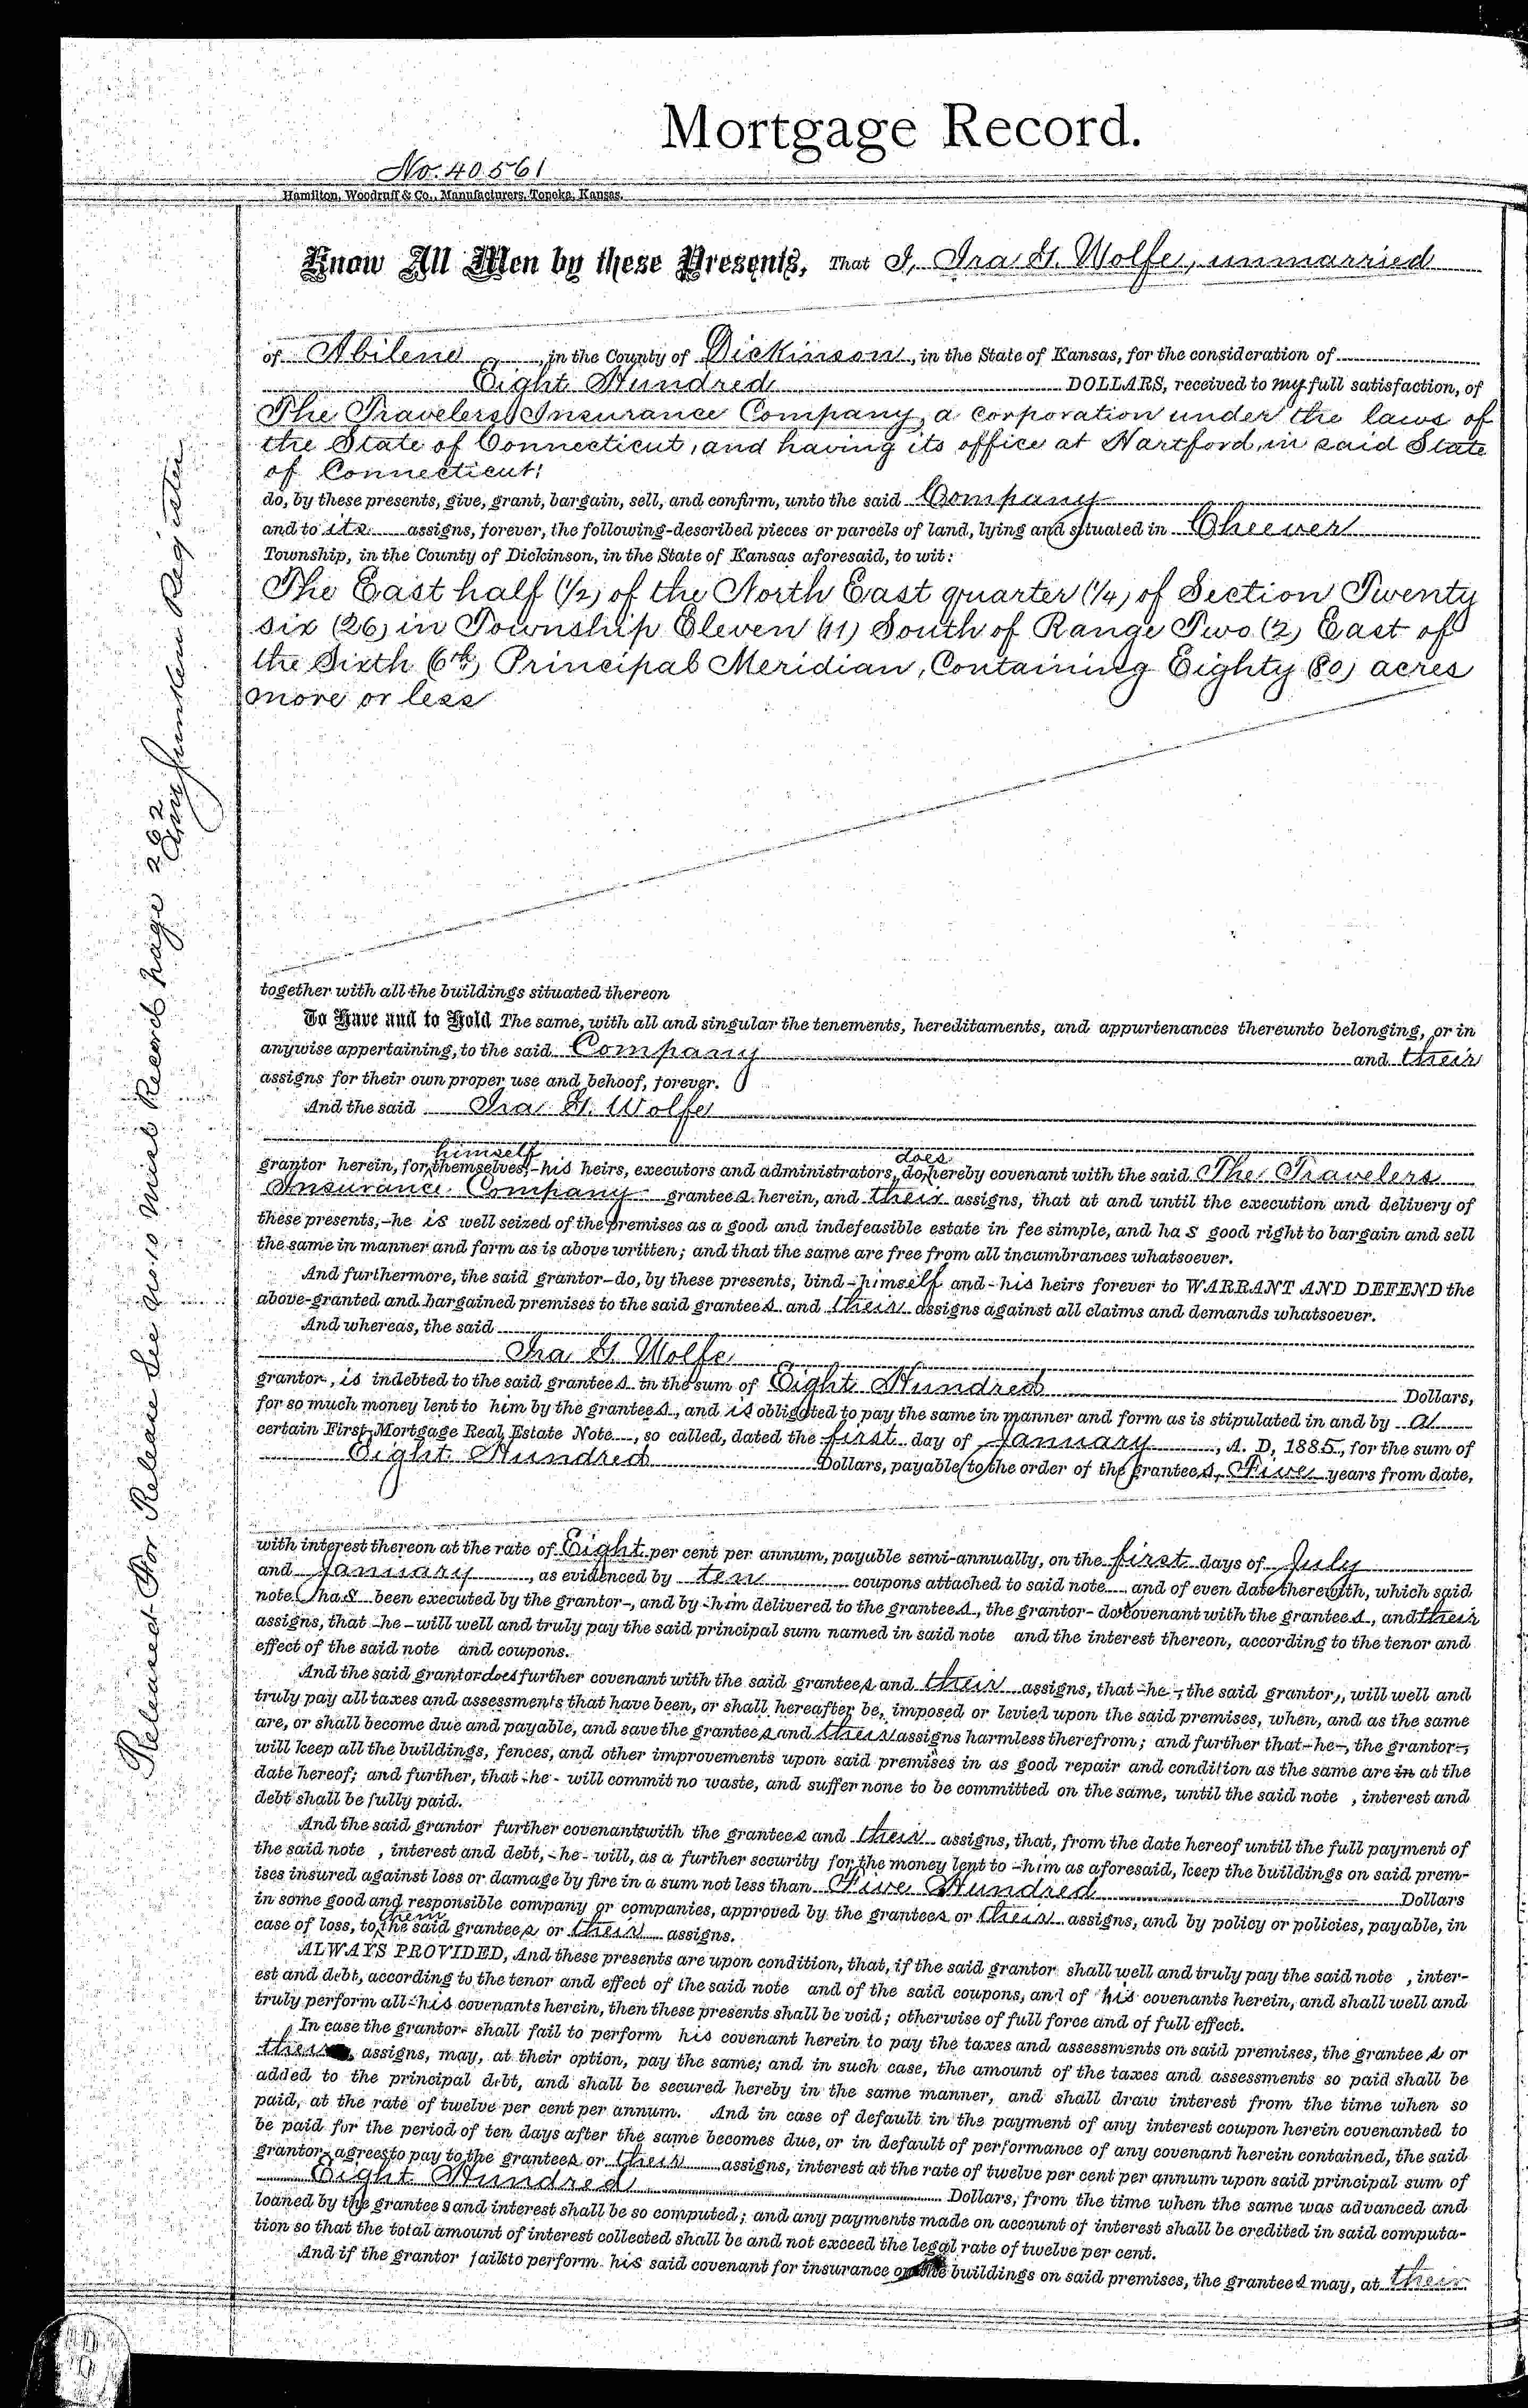 Mortgage Record.
No. 40561
Hamilton, Woodruff & Co., Manufacturers, Topeka, Kansas.
Know All Men by these Presents, That I, Ira G. Wolfe, unmarried
of Abilene, in the County of Dickinson, in the State of Kansas, for the consideration of
Eight Hundred DOLLARS, received to my full satisfaction, of
The Travelers Insurance Company, a corporation under the laws of
the State of Connecticut, and having its office at Hartford, in said State
of Connecticut;
do, by these presents, give, grant, bargain, sell, and confirm, unto the said Company
and to its assigns, forever, the following-described pieces or parcels of land, lying and situated in Cheever
Township, in the County of Dickinson, in the State of Kansas aforesaid, to wit:
The East half (1/2) of the North East quarter (1/4) of Section Twenty
six (26) in Township Eleven (11) South of Range Two (2) East of
the Sixth (6th) Principal Meridian, Containing Eighty (80) acres
more or less
together with all the buildings situated thereon
To Have and to Hold The same, with all and singular the tenements, hereditaments, and appurtenances thereunto belonging, or in
anywise appertaining, to the said Company and their
assigns for their own proper use and behoof, forever.
And the said Ira G. Wolfe
himself does
grantor herein, for themselves, his heirs, executors and administrators, do hereby covenant with the said The Travelers
Insurance Company grantees herein, and their assigns, that at and until the execution and delivery of
these presents, -he is well seized of the premises as a good and indefeasible estate in fee simple, and has good right to bargain and sell
the same in manner and form as is above written; and that the same are free from all incumbrances whatsoever.
And furthermore, the said grantor-do, by these presents, bind -himself and -his heirs forever to WARRANT AND DEFEND the
above-granted and bargained premises to the said grantees and their assigns against all claims and demands whatsoever.
And whereas, the said
Ira G Wolfe
grantor, is indebted to the said grantees in the sum of Eight Hundred Dollars,
for so much money lent to him by the grantees, and is obligated to pay the same in manner and form as is stipulated in and by a
certain First Mortgage Real Estate Note, so called, dated the first day of January, A. D. 1885, for the sum of
Eight Hundred Dollars, payable to the order of the grantees, Five years from date,
with interest thereon at the rate of Eight per cent per annum, payable semi-annually, on the first days of July
and January, as evidenced by ten coupons attached to said note, and of even date therewith, which said
note has been executed by the grantor-, and by -him delivered to the grantees, the grantor- does covenant with the grantees, and their
assigns, that -he- will well and truly pay the said principal sum named in said note and the interest thereon, according to the tenor and
effect of the said note and coupons.
And the said grantor does further covenant with the said grantees and their assigns, that -he-, the said grantor, will well and
truly pay all taxes and assessments that have been, or shall hereafter be, imposed or levied upon the said premises, when, and as the same
are, or shall become due and payable, and save the grantees and their assigns harmless therefrom; and further that -he-, the grantor-,
will keep all the buildings, fences, and other improvements upon said premises in as good repair and condition as the same are in at the
date hereof; and further, that -he- will commit no waste, and suffer none to be committed on the same, until the said note , interest and
debt shall be fully paid.
And the said grantor further covenants with the grantees and their assigns, that, from the date hereof until the full payment of
the said note , interest and debt, -he- will, as a further security for the money lent to -him as aforesaid, keep the buildings on said prem-
ises insured against loss or damage by fire in a sum not less than Five Hundred Dollars
in some good and responsible company or companies, approved by the grantees or their assigns, and by policy or policies, payable, in
them
case of loss, to the said grantees or their assigns.
ALWAYS PROVIDED, And these presents are upon condition, that, if the said grantor shall well and truly pay the said note , inter-
est and debt, according to the tenor and effect of the said note and of the said coupons, and of his covenants herein, and shall well and
truly perform all -his covenants herein, then these presents shall be void; otherwise of full force and of full effect.
In case the grantor- shall fail to perform his covenant herein to pay the taxes and assessments on said premises, the grantees or
their assigns, may, at their option, pay the same; and in such case, the amount of the taxes and assessments so paid shall be
added to the principal debt, and shall be secured hereby in the same manner, and shall draw interest from the time when so
paid, at the rate of twelve per cent per annum. And in case of default in the payment of any interest coupon herein covenanted to
be paid for the period of ten days after the same becomes due, or in default of performance of any covenant herein contained, the said
grantor- agrees to pay to the grantees or their assigns, interest at the rate of twelve per cent per annum upon said principal sum of
Eight Hundred Dollars, from the time when the same was advanced and
loaned by the grantees and interest shall be so computed; and any payments made on account of interest shall be credited in said computa-
tion so that the total amount of interest collected shall be and not exceed the legal rate of twelve per cent.
And if the grantor fails to perform his said covenant for insurance on the buildings on said premises, the grantees may, at their
Released For Release See No. 10 Misl Record page 262
Junken Register